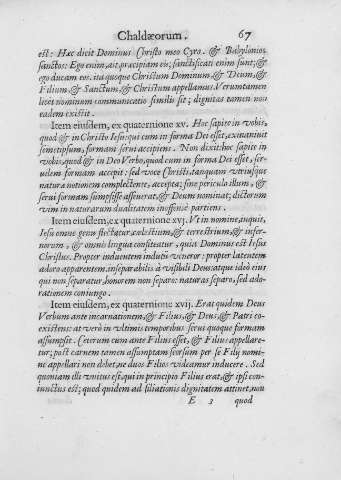 Chaldæorum. 67
est: Hæc dicit Dominus Christo meo Cyro. & Babylonios
sanctos: Ego enim, ait, præcipiam eis; sanctificati enim sunt; &
ego ducam eos. ita quoque Christum Dominum, & Deum, &
Filium, & Sanctum, & Christum appellamus. Verumtamen
licet nominum communicatio similis sit; dignitas tamen non
eadem existit.
Item eiusdem, ex quaternione xv. Hoc sapite in vobis,
quod & in Christo Iesu: qui cum in forma Dei esset, exinaniuit
semetipsum, formam serui accipiens. Non dixit: hoc sapite in
vobis, quod & in Deo Verbo, quod cum in forma Dei esset, ser-
uilem formam accepit: sed voce Christi, tanquam vtriusque
naturæ notionem complectente, accepta; sine periculo illum, &
serui formam sumpsisse asseuerat, & Deum nominat; dictorum
vim in naturarum dualitatem inoffensè partiens.
Item eiusdem, ex quaternione xvj. Vt in nomine, inquit,
Iesu omne genu flectatur, cælestium, & terrestrium, & infer-
norum, & omnis lingua confiteatur, quia Dominus est Iesus
Christus. Propter induentem indutū veneror: propter latentem
adoro apparentem, inseparabilis à visibili Deus: atque ideò eius
qui non separatur, honorem non separo: naturas separo, sed ado-
rationem coniungo.
Item eiusdem, ex quaternione xvij. Erat quidem Deus
Verbum ante incarnationem, & Filius, & Deus, & Patri co-
existens: at verò in vltimis temporibus serui quoque formam
assumpsit. Ceterum cum ante Filius esset, & Filius appellare-
tur; post carnem tamen assumptam seorsum per se Filij nomi-
ne appellari non debet, ne duos Filios videamur inducere. Sed
quoniam illi vnitus est, qui in principio Filius erat, & ipsi coniun-
ctus est; quod quidem ad filiationis dignitatem attinet, non
E 3 quod